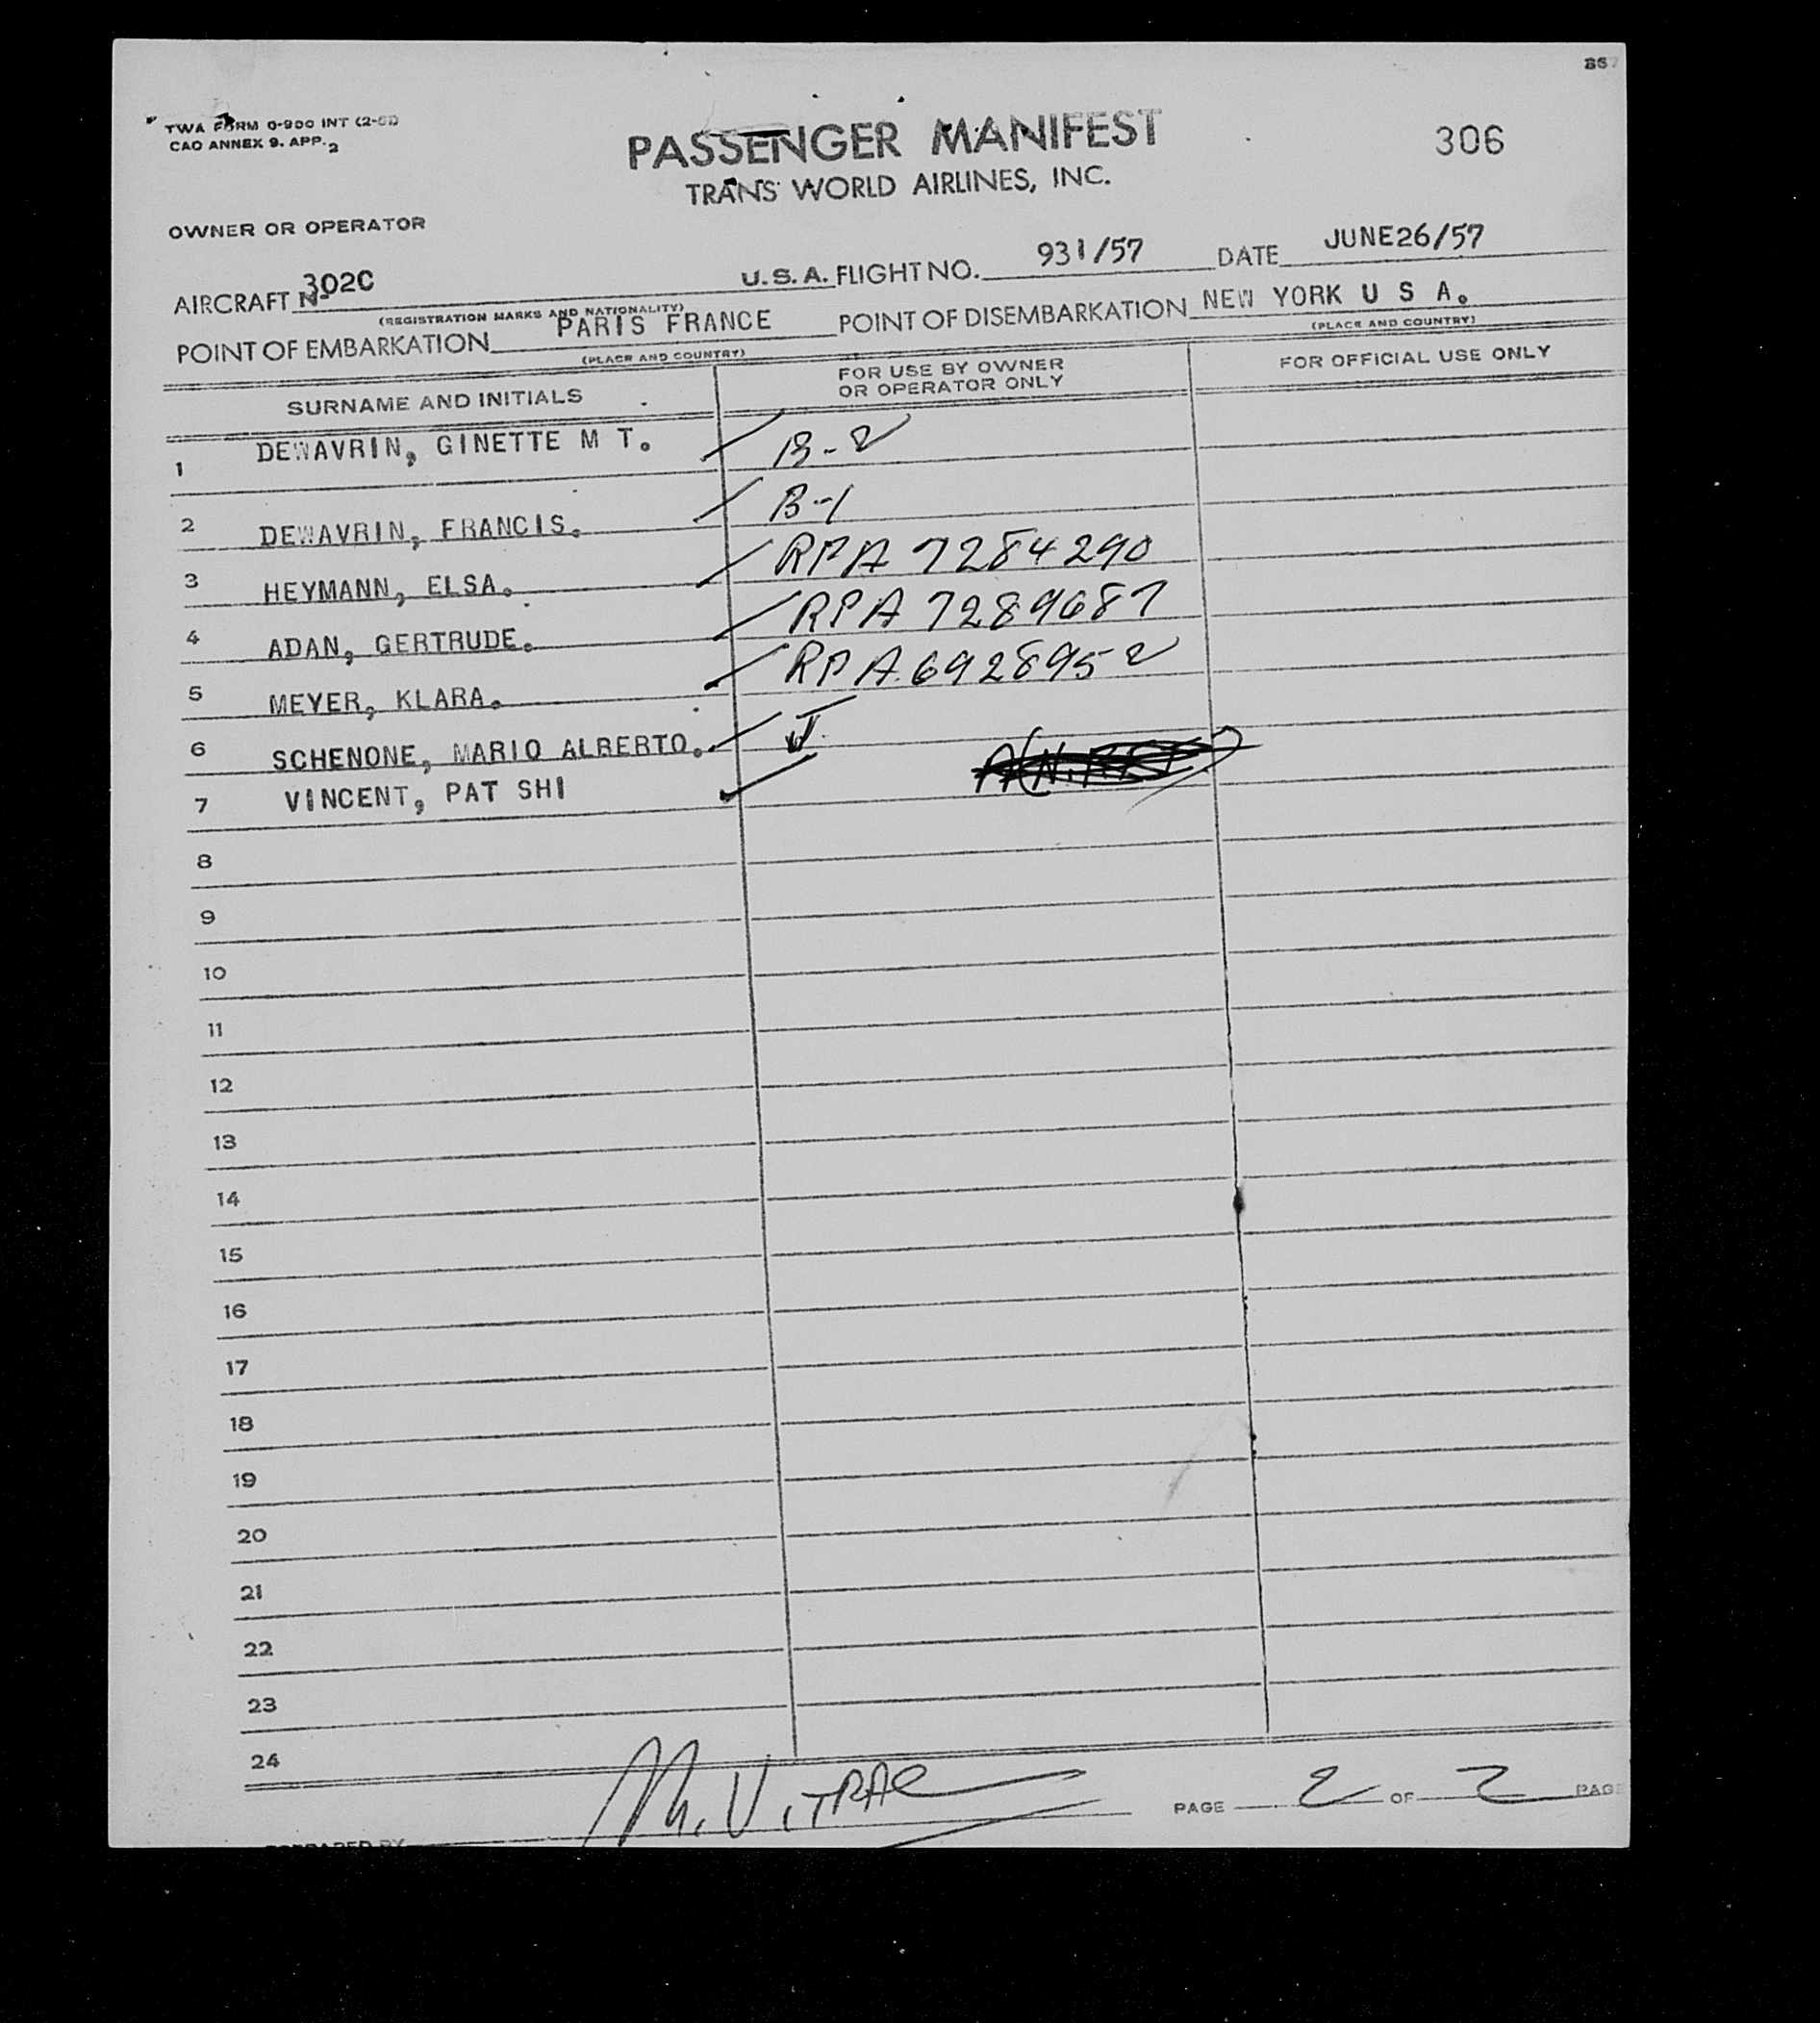 867
TWA FORM 0-900 INT (2-51)
CAO ANNEX 9. APP. 2
PASSENGER MANIFEST
306
TRANS WORLD AIRLINES, INC.
OWNER OR OPERATOR
AIRCRAFT N- 302C U.S.A. FLIGHT NO. 931/57 DATE JUNE26/57
(REGISTRATION MARKS AND NATIONALITY)
POINT OF EMBARKATION PARIS FRANCE POINT OF DISEMBARKATION NEW YORK U S A.
(PLACE AND COUNTRY) (PLACE AND COUNTRY)
SURNAME AND INITIALS FOR USE BY OWNER OR OPERATOR ONLY FOR OFFICIAL USE ONLY
1 DEWAVRIN, GINETTE M T. B-2
2 DEWAVRIN, FRANCIS. B-1
3 HEYMANN, ELSA. RPA 7284290
4 ADAN, GERTRUDE. RPA 7289687
5 MEYER, KLARA. RPA 6928952
6 SCHENONE, MARIO ALBERTO.
7 VINCENT, PAT SHI
8
9
10
11
12
13
14
15
16
17
18
19
20
21
22
23
24
PREPARED BY M. VITRAC PAGE 2 OF 2 PAGE